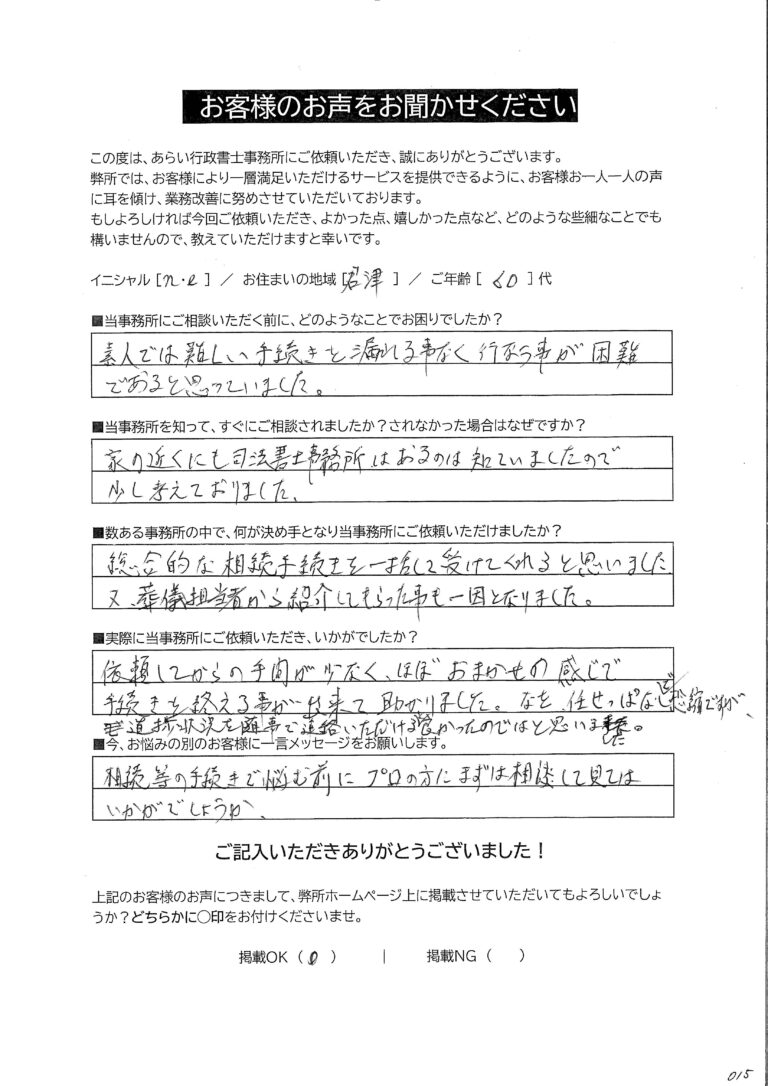 お客様のお声をお聞かせください
この度は、あらい行政書士事務所にご依頼いただき、誠にありがとうございます。
弊所では、お客様により一層満足いただけるサービスを提供できるように、お客様お一人一人の声
に耳を傾け、業務改善に努めさせていただいております。
もしよろしければ今回ご依頼いただき、よかった点、嬉しかった点など、どのような些細なことでも
構いませんので、教えていただけますと幸いです。
イニシャル [ n・e ] / お住まいの地域 [ 沼津 ] / ご年齢 [ 60 ] 代
■当事務所にご相談いただく前に、どのようなことでお困りでしたか？
素人では難しい手続きを漏れる事なく行なう事が困難
であると思っていました。
■当事務所を知って、すぐにご相談されましたか？されなかった場合はなぜですか？
家の近くにも司法書士事務所はあるのは知ていましたので
少し考えておりました、
■数ある事務所の中で、何が決め手となり当事務所にご依頼いただけましたか？
総合的な相続手続きを一括して受けてくれると思いました
又、葬儀担当者から紹介してもらった事も一因となりました。
■実際に当事務所にご依頼いただき、いかがでしたか？
依頼してからの手間が少なく、ほぼおまかせの感じで
手続きを終える事が出来て助かりました。なを、任せっぱなしで恐縮ですが、
進捗状況を随事で連絡いただける良かったのではと思いました。
■今、お悩みの別のお客様に一言メッセージをお願いします。
相続等の手続きで悩む前にプロの方にまずは相談して見ては
いかがでしょうか、
ご記入いただきありがとうございました！
上記のお客様のお声につきまして、弊所ホームページ上に掲載させていただいてもよろしいでしょ
うか？どちらかに〇印をお付けくださいませ。
掲載OK （ 0 ） | 掲載NG （ ）
015